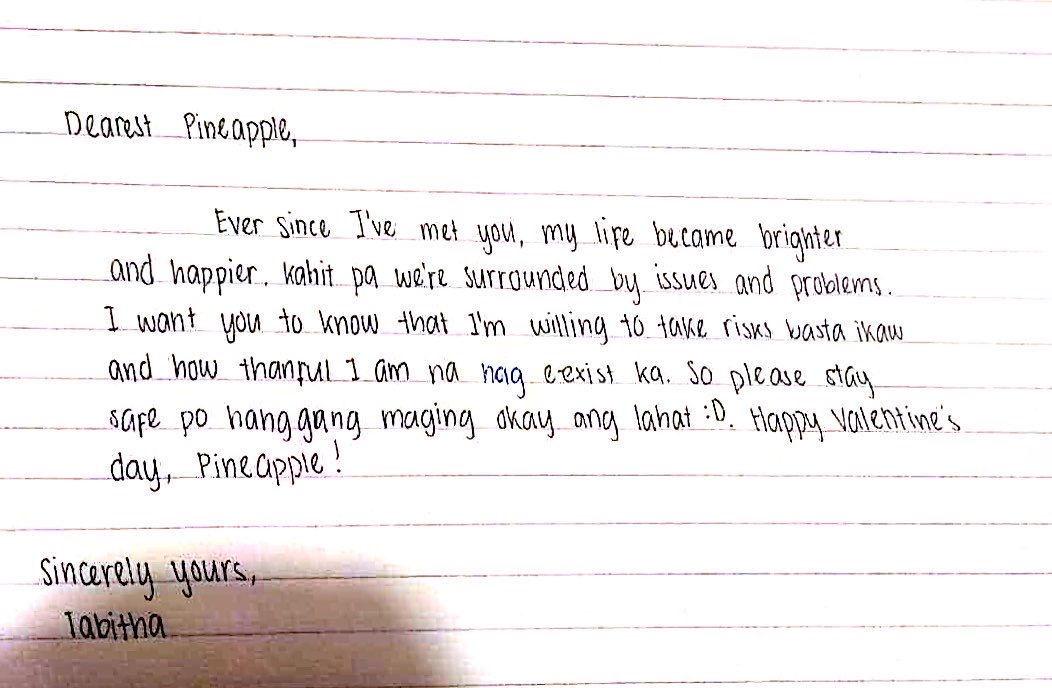 Dearest Pineapple,
Ever since I've met you, my life became brighter
and happier, kahit pa we're surrounded by issues and problems.
I want you to know that I'm willing to take risks basta ikaw
and how thanful I am na nag e-exist ka. So please stay
safe po hanggang maging okay ang lahat :D. Happy Valentine's
day, Pineapple!
Sincerely yours,
Tabitha